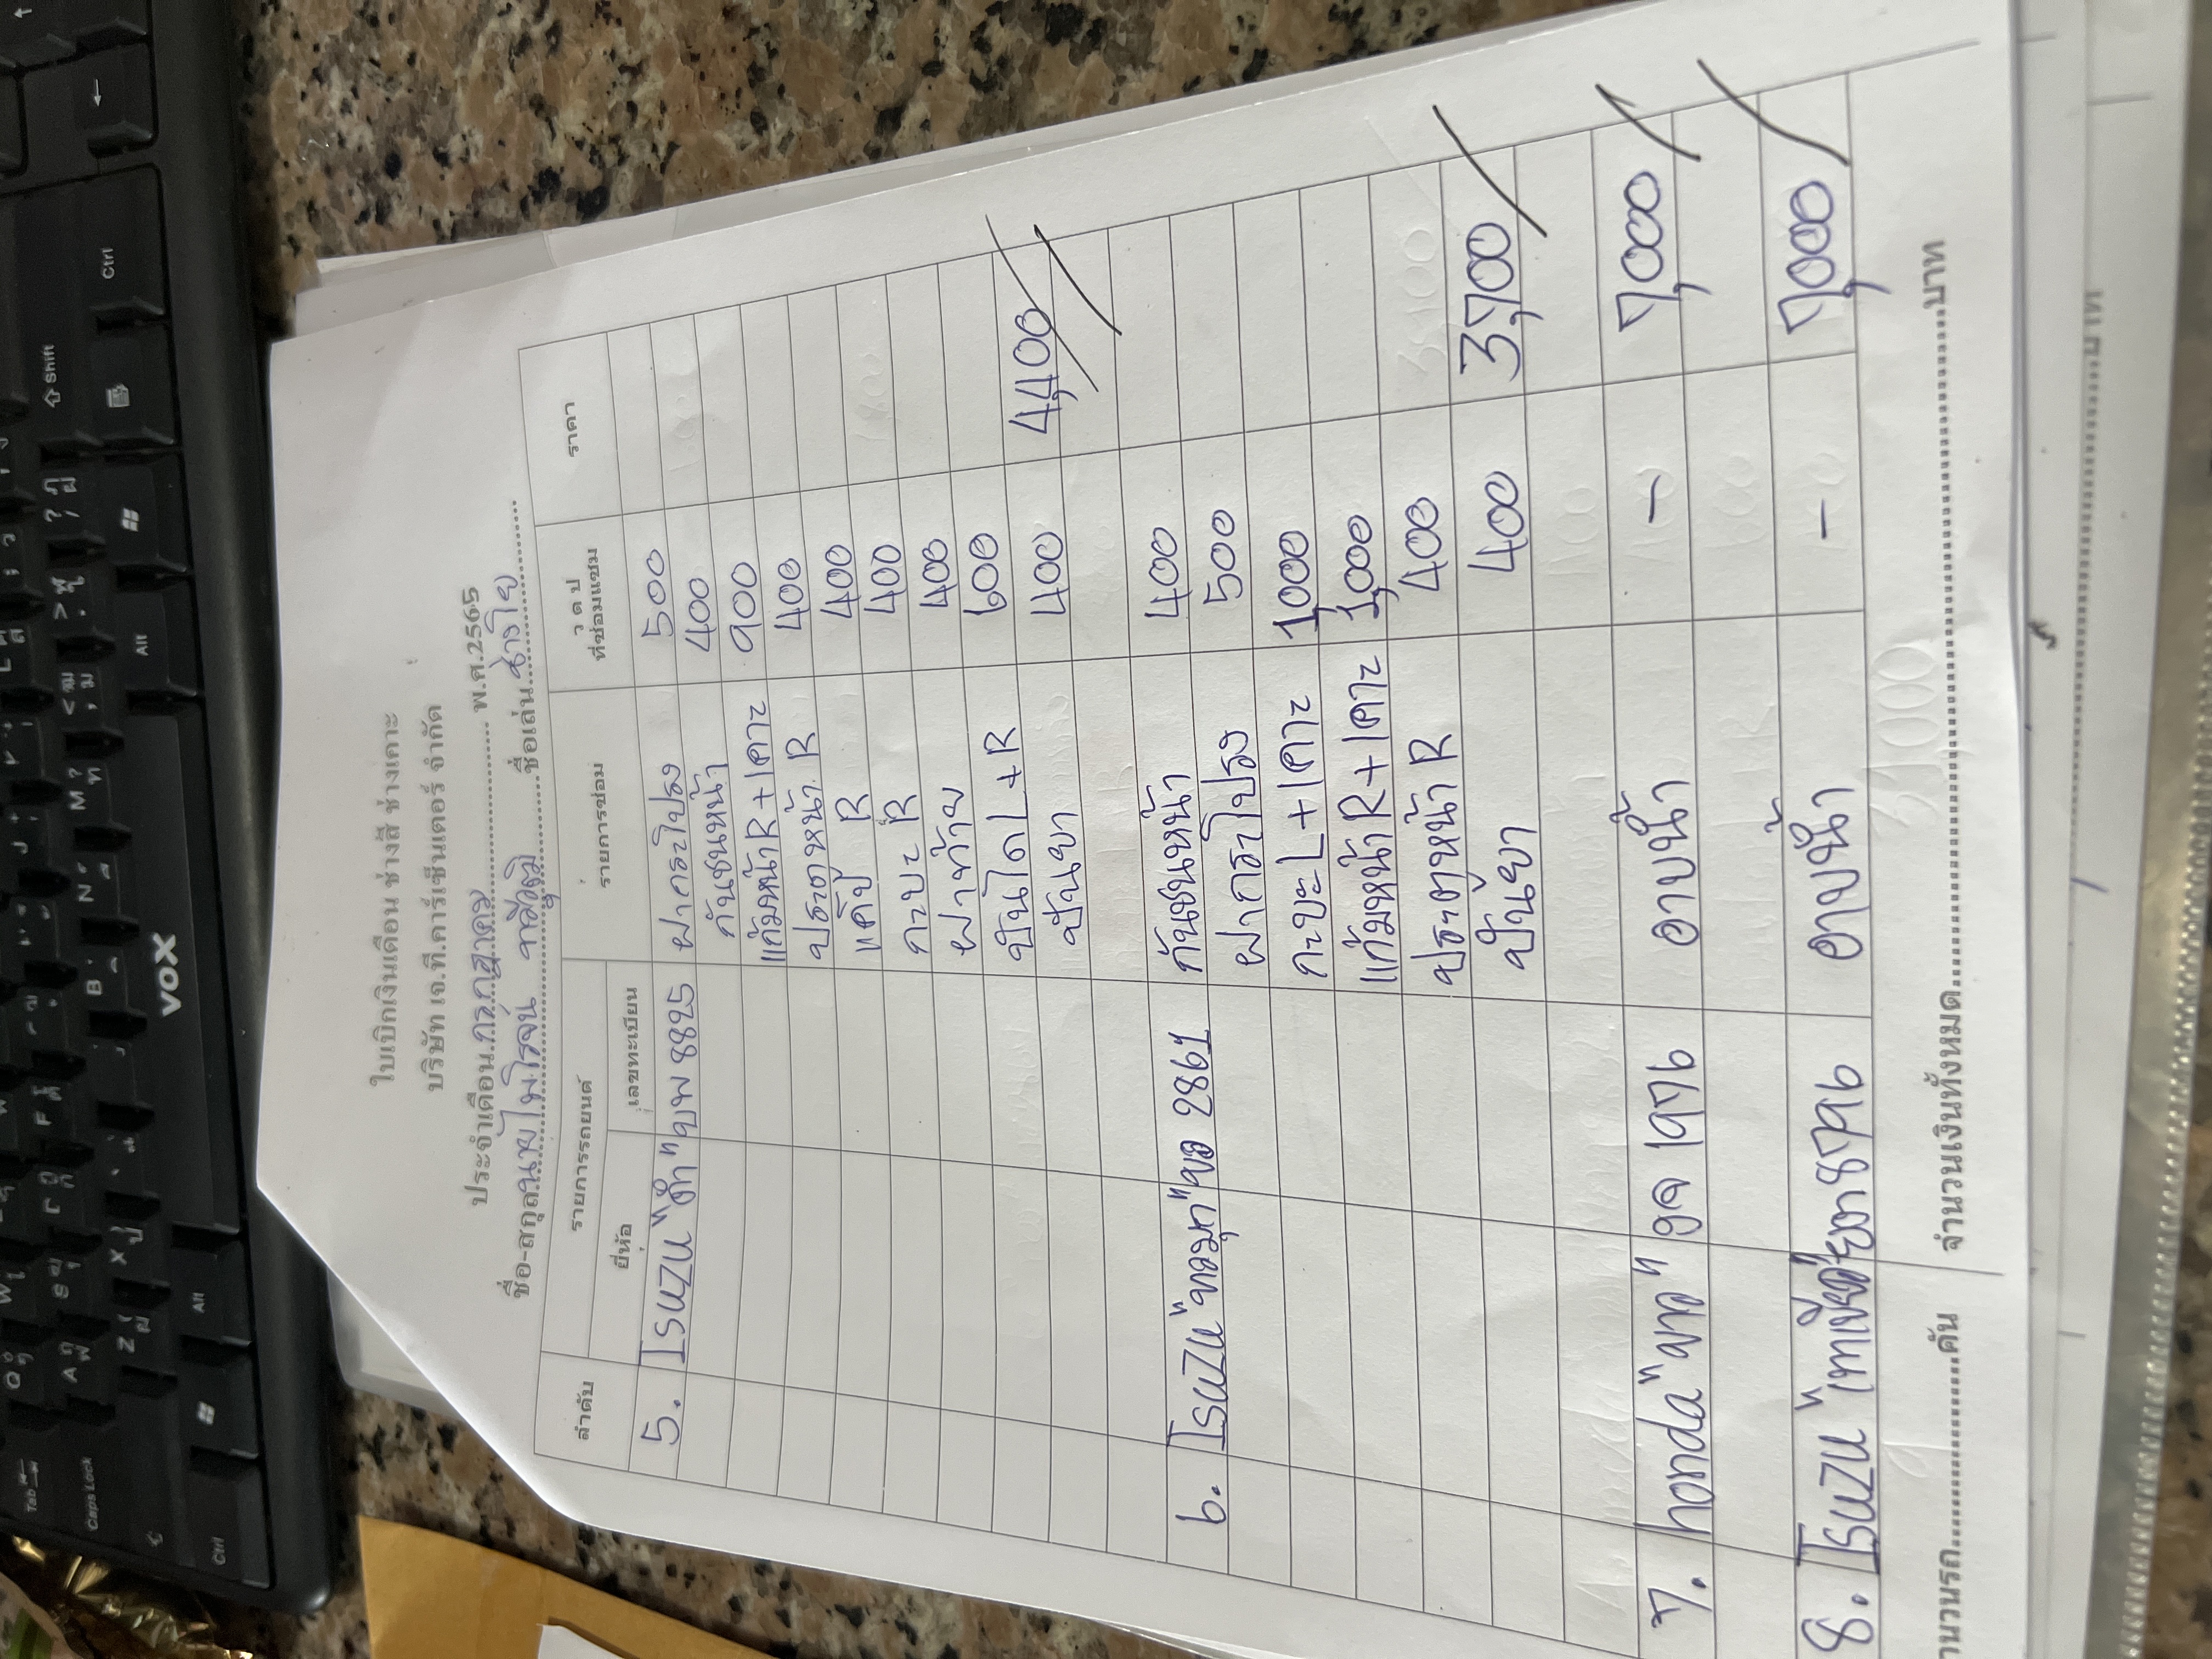 ใบเบิกเงินเดือน ช่างสี ช่างเคาะ
บริษัท เจ.ที.คาร์เซ็นเตอร์ จำกัด
ประจำเดือน กรกฎาคม พ.ศ.2565
ชื่อ-สกุล นายไพโรจน์ ชื่อเล่น ช่างโย
ลำดับ รายการรถยนต์ รายการซ่อม ว ด ป ที่ซ่อมแซม ราคา
ยี่ห้อ เลขทะเบียน
5. Isuzu "ดำ" ยพ 8825 ฝากระโปรง 500
กันชนหน้า 400
แก้มหน้า R + เคาะ 900
ประตูหน้า R 400
แค๊ป R 400
กะบะ R 400
ฝาท้าย 400
บันได L + R 600
ปั่นยา 400 4,400
6. Isuzu "ขาวมุก" ขอ 2861 กันชนหน้า 400
ฝากระโปรง 500
กะบะ L + เคาะ 1,000
แก้มหน้า R + เคาะ 1,000
ประตูหน้า R 400
ปั่นยา 400 3,700
7. honda "ขาว" 1976 อาบน้ำ - 7,000
8. Isuzu 8796 อาบน้ำ - 7,000
จำนวนรถ คัน จำนวนเงินทั้งหมด บาท
บาท
VOX
Tab
Caps Lock
Shift
Ctrl
Alt
Alt
Ctrl